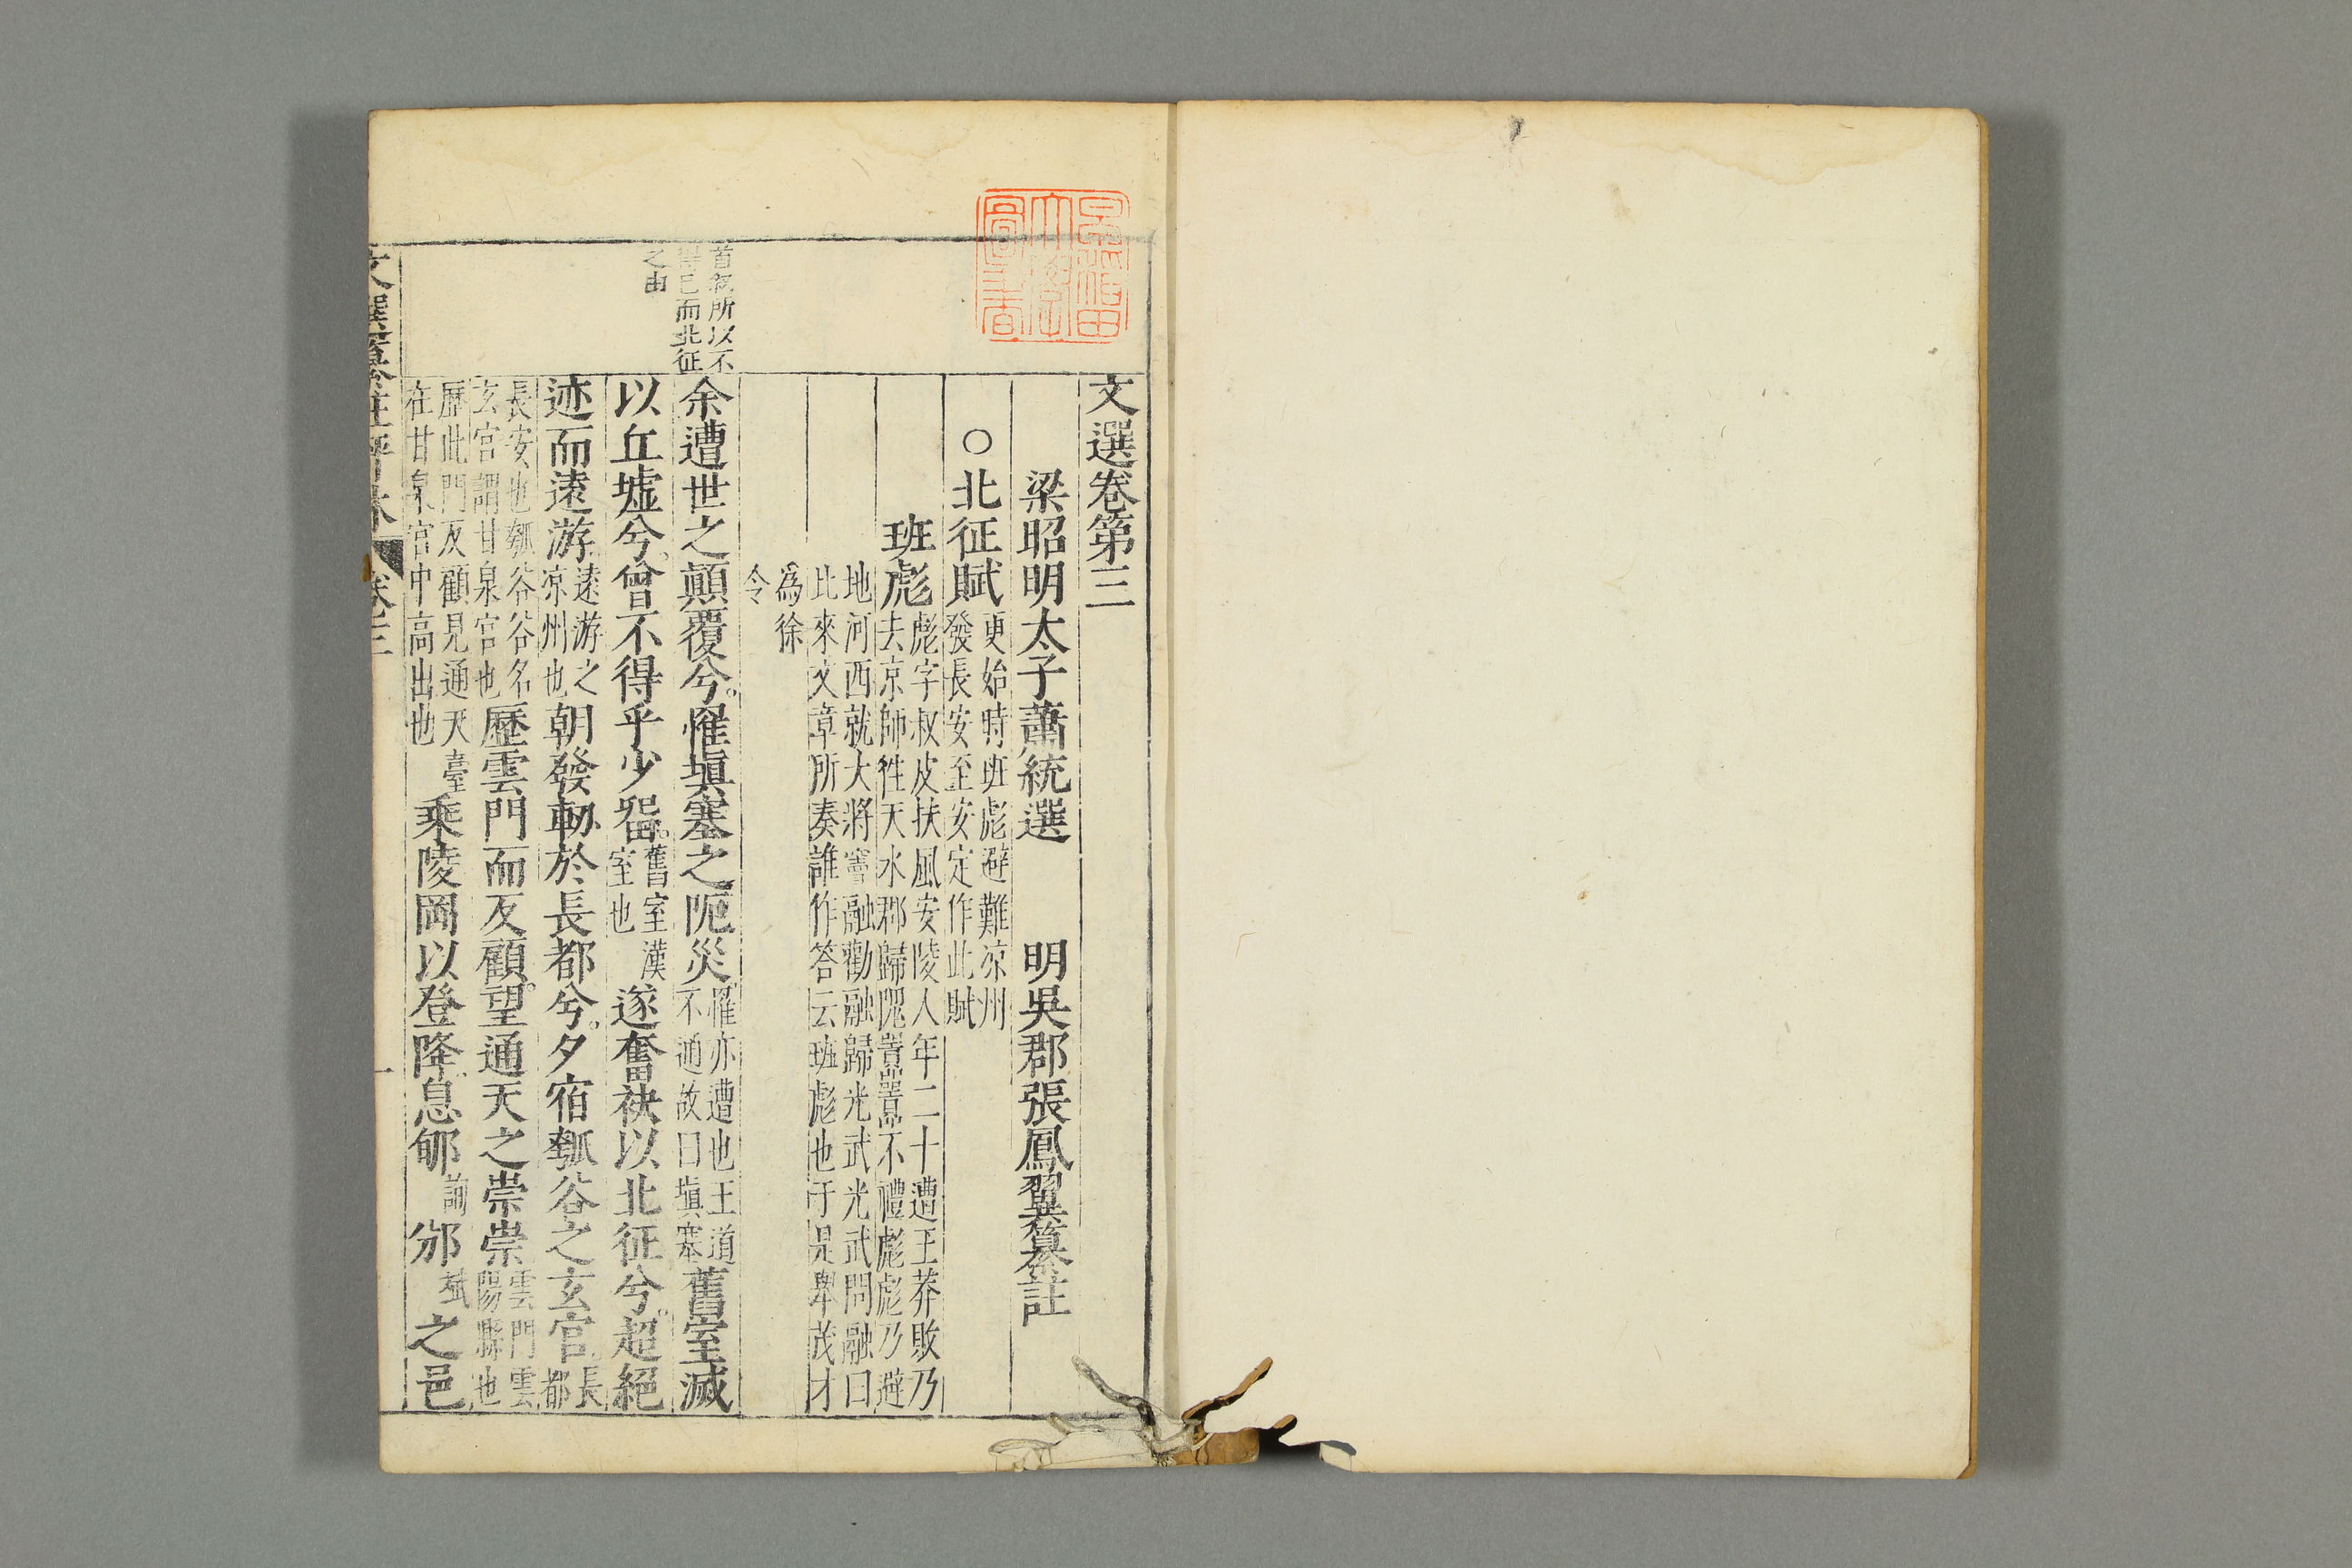 文選卷第三
梁昭明太子蕭統選 明吳郡張鳳翼纂註
○北征賦
更始時班彪避難凉州
發長安至安定作此賦
班彪
彪字叔皮扶風安陵人年二十遭王莽敗乃
去京師徃天水郡歸隗囂囂不禮彪彪乃避
地河西就大將竇融勸融歸光武光武問融曰
比來文章所奏誰作答云班彪也于是舉茂才
為徐
令
首叙所以不
得已而北征
之由
余遭世之顛覆兮罹塡塞之阨災
罹亦遭也王道
不通故曰塡塞
舊室滅
以丘墟兮曾不得乎少留
舊室漢
室也
遂奮袂以北征兮超絕
迹而遠游
遠游之
凉州也
朝發軔於長都兮夕宿瓠谷之玄宮
長
都
長安也瓠谷谷名
玄宮謂甘泉宮也
歷雲門而反顧望通天之崇崇
雲門雲
陽縣也
歷此門反顧見通天臺
在甘泉宮中高出也
乘陵岡以登降息郇
詢
邠
斌
之邑
文選纂註評林 卷三
一